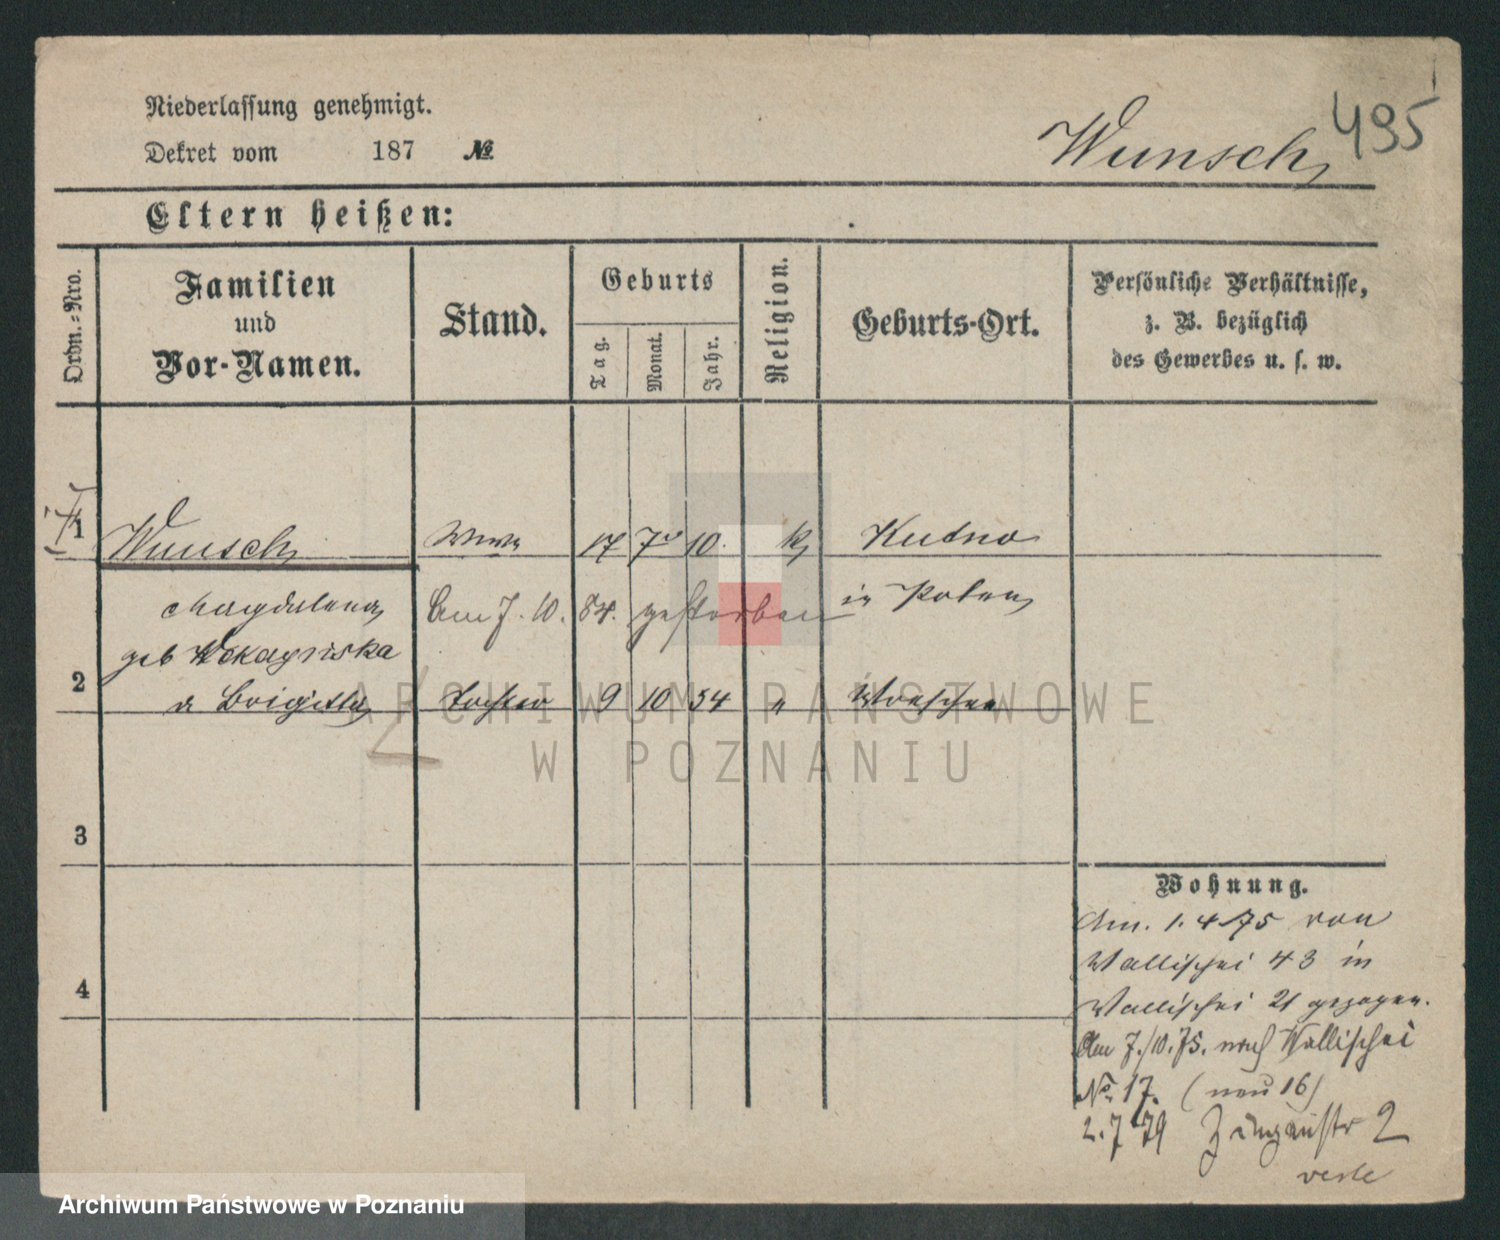 Niederlassung genehmigt.
Dekret vom 187 №
Wunsch
495
Eltern heißen:
Ordn.-Nro.
Familien
und
Vor-Namen.
Stand.
Geburts
Tag.
Monat.
Jahr.
Religion.
Geburts-Ort.
Persönliche Verhältnisse,
z. B. bezüglich
des Gewerbes u. s. w.
1 Wunsch Wwe 17 7 10. k Kutno
Magdalena Am 7. 10. 84. gestorben in Polen
geb
2 Brigitta Tochter 9 10 54 " Wreschen
ARCHIWUM PAŃSTWOWE
W POZNANIU
3
4
Wohnung.
Am. 1. 4 75 von
Wallischei 43 in
Wallischei 21 gezogen.
Am 7./10.75. nach Wallischei
No. 17. (neu 16)
2. 7 79 2
Archiwum Państwowe w Poznaniu